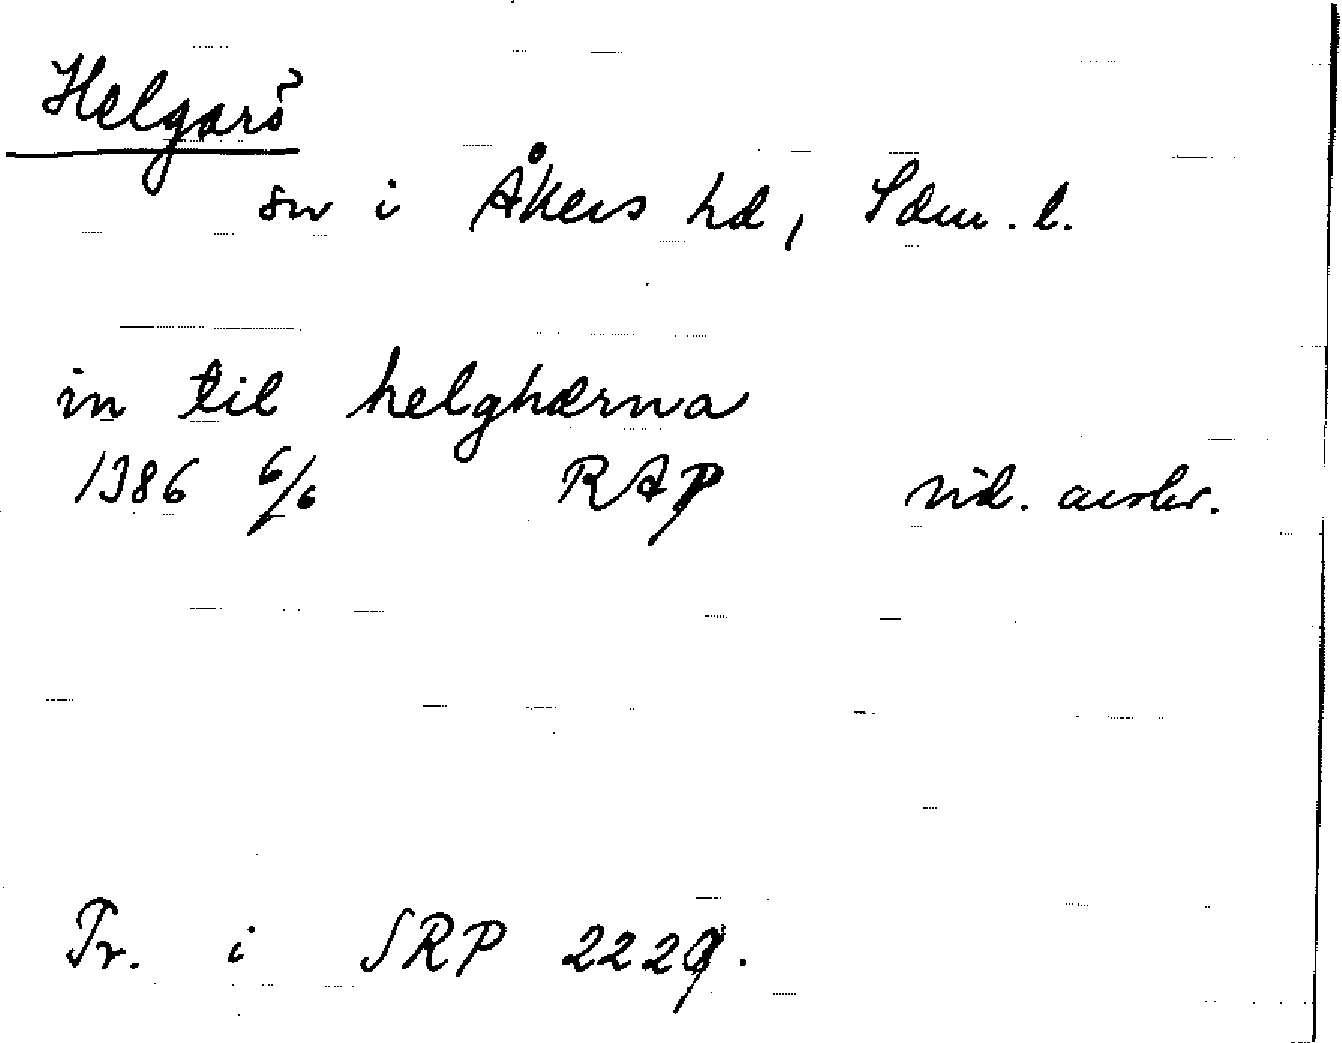 Helgarö
sn i Åkers hd, Sdm. l.
in til helghærna
1386 6/6 RAP vid. avskr.
Tr. i SRP 2229.